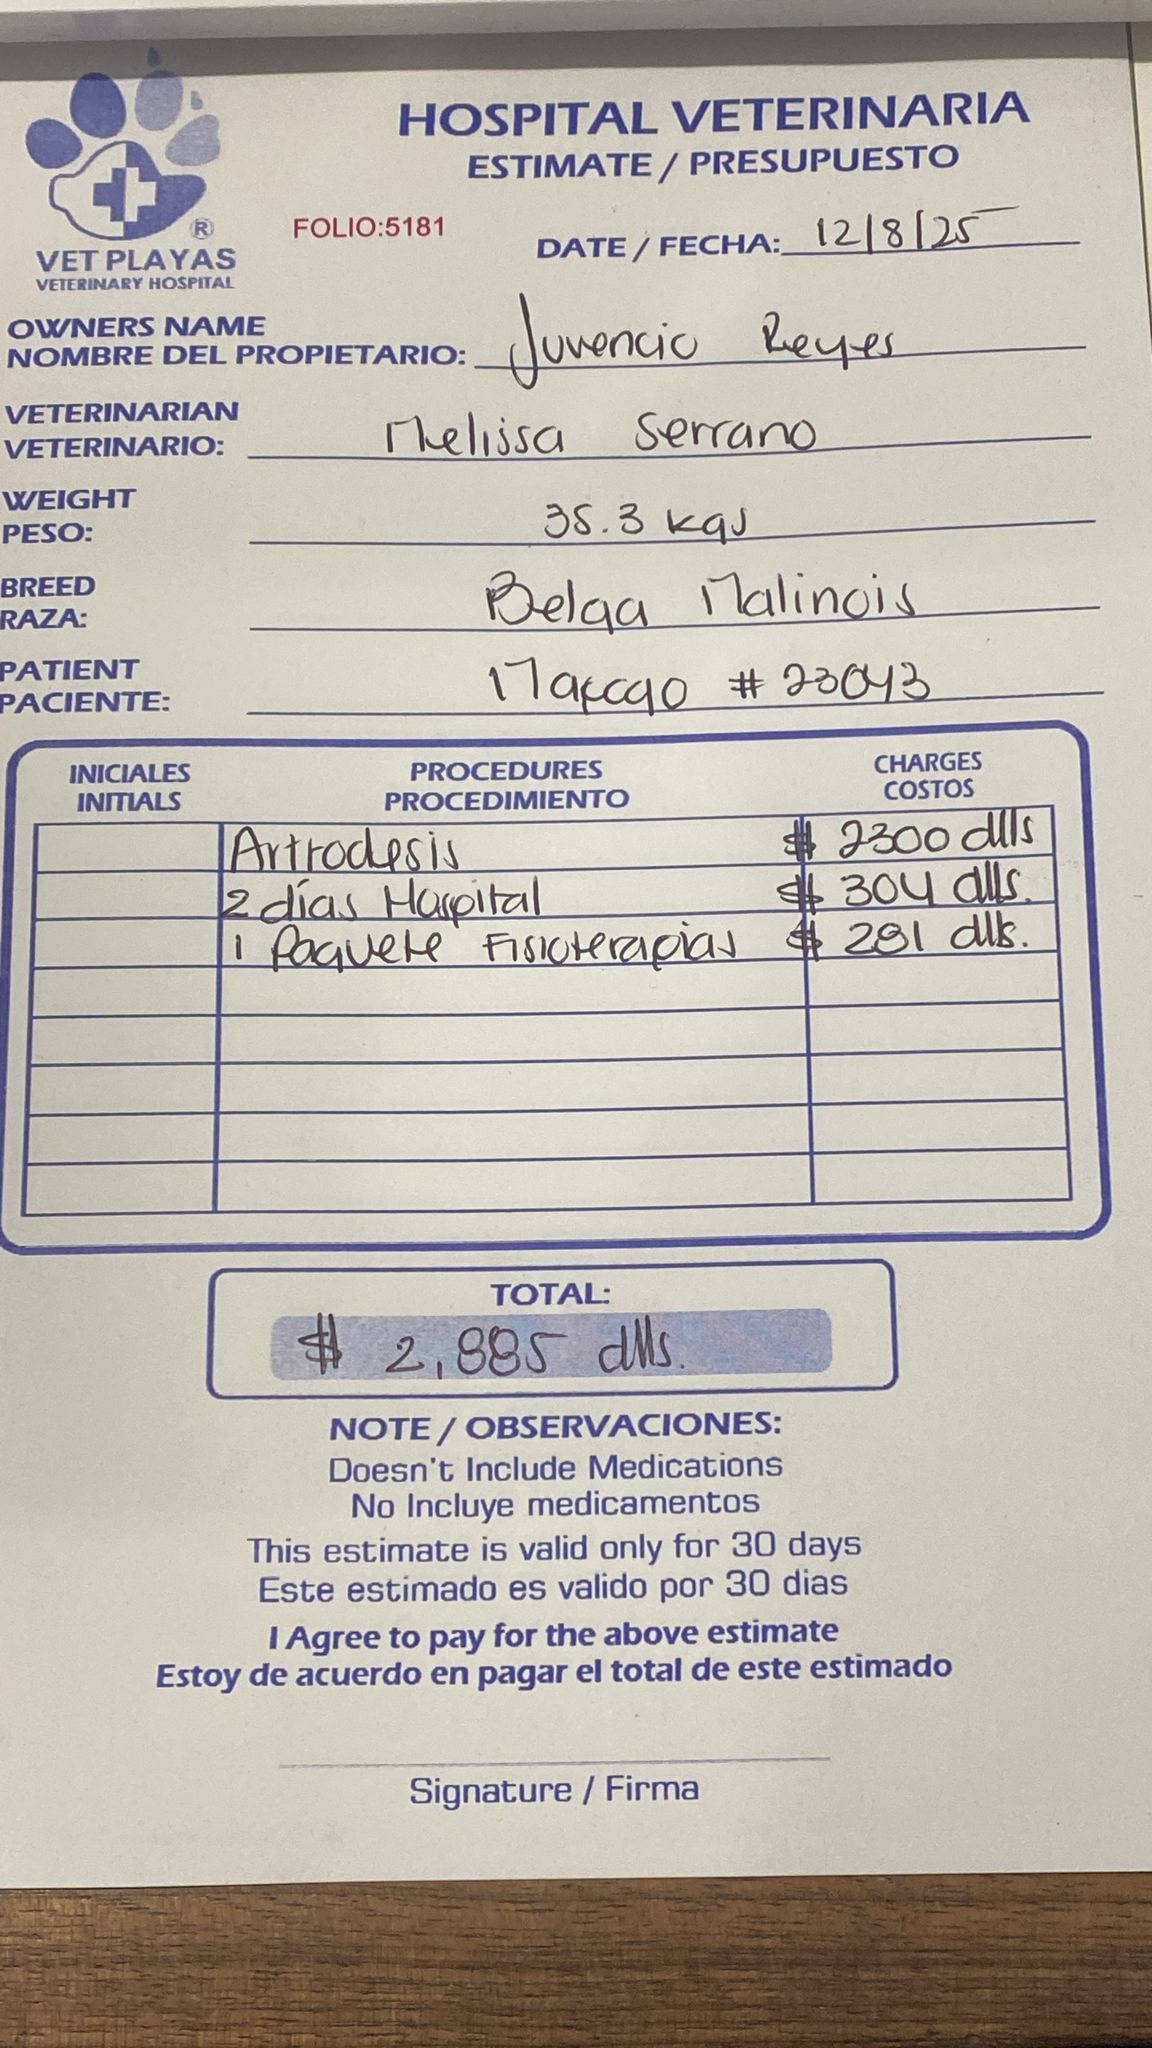 HOSPITAL VETERINARIA
ESTIMATE / PRESUPUESTO
®
VET PLAYAS
VETERINARY HOSPITAL
FOLIO:5181
DATE / FECHA: 12/8/25
OWNERS NAME
NOMBRE DEL PROPIETARIO: Juvencio Reyes
VETERINARIAN
VETERINARIO: Melissa Serrano
WEIGHT
PESO: 35.3 kgs
BREED
RAZA: Belga Malinois
PATIENT
PACIENTE: # 23043
INICIALES PROCEDURES CHARGES
INITIALS PROCEDIMIENTO COSTOS
Artrodesis $ 2300 dlls
2 días Hospital $ 304 dlls.
1 Paquete Fisioterapias $ 281 dlls.
TOTAL:
$ 2,885 dlls.
NOTE / OBSERVACIONES:
Doesn't Include Medications
No Incluye medicamentos
This estimate is valid only for 30 days
Este estimado es valido por 30 dias
I Agree to pay for the above estimate
Estoy de acuerdo en pagar el total de este estimado
Signature / Firma